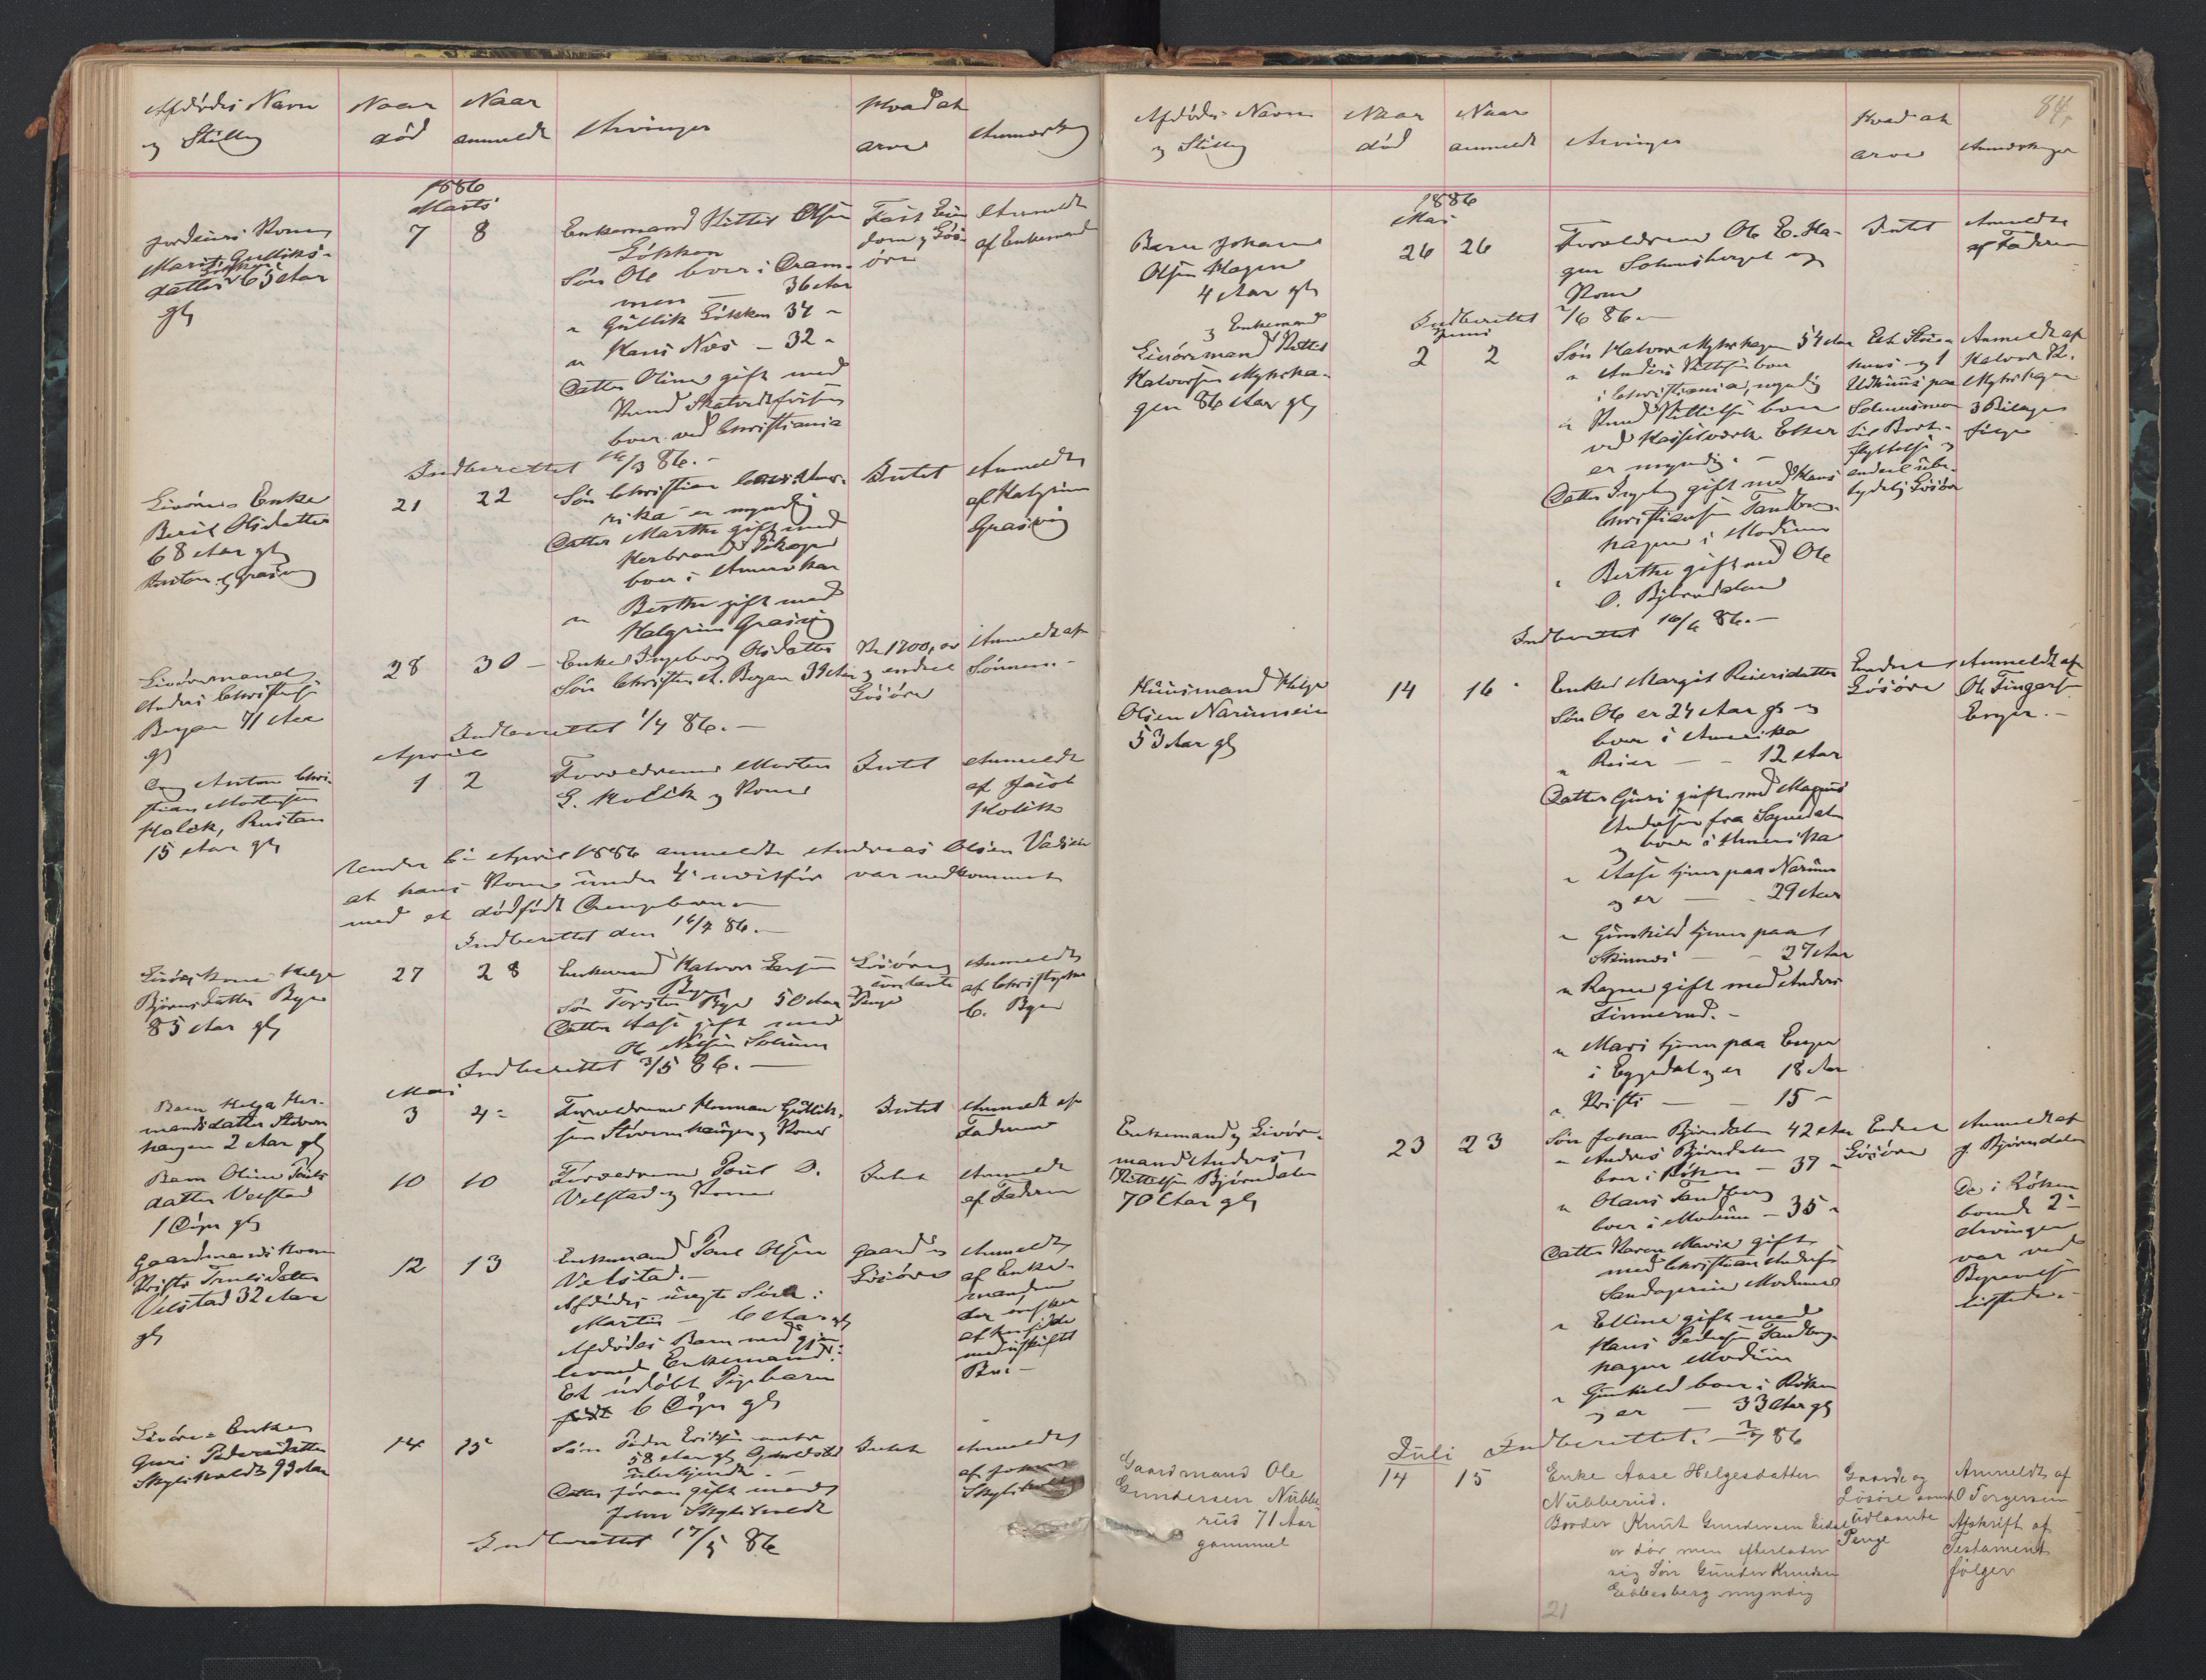 Afdødes Navn
og Stilling
Naar
død
Naar
anmeldt
Arvinger
Hvad at
arve
Anmærkn
1886
Marts
Jordeiers Kone
Marit Gulliks-
datter Løkken 65 Aar
gl
7
8
Enkemand Kittil Olsen
Løkken
Søn Ole boer i Dram-
men — 36 Aar
" Gullik Løkken 34 "
" Hans Næs — 32 "
Datter Oline gift med
Knud
boer ved Christiania
Fast Eien
dom og Løs-
øre
Anmeldt
af Enkemand
Indberettet /3 86.-
Livøres Enke
Berit Olsdatter
68 Aar gl
21
22
Søn Christian
rika er myndig
Datter Marthe gift med
Herbrand
boer i Amerika
" Berthe gift med
Halgrim
Intet
Anmeldt
af Halgrim
Livøresmand
Anders Christensen
Bergan 71 Aar
gl
28
30 -
Enke Ingeborg Olsdatter
Søn Christen A. Bergan 39 Aar
Kr 1200, og
endeel
Løsøre
Anmeldt af
Sønnen.-
Indberettet 1/4 86.—
April
Dreng Anton Chri-
stian Mortensen
Kolbk, Rustan
15 Aar gl
1
2
Forældrene Morten
G. Kolbk og Kone
Intet
Anmeldt
af Jacob
Under 6te April 1886 anmeldte Andreas Olsen
at hans Kone under 4de var nedkommet
med et dødfødt Drengebarn
Indberettet den 16/4 86.—
Livøres Kone Helge
Bjørnsdatter Bye
85 Aar gl
27
28
Enkemand Halvor
Bye
Søn Torsten Bye 50 Aar
Datter Aase gift med
Ole Nilsen
Løsøre
og
Penge
Anmeldt
af Christopher
C. Bye
Indberettet 3/5 86.—
Mai
Barn Helga Her-
mandsdatter
haugen 2 Aar gl
3
4
Forældrene Herman Gullik-
sen og Kone
Intet
Anmeldt af
Faderen
Barn Oline Pauls
datter Velstad
1 Døgn gl
10
10
Forældrene Poul O.
Velstad og Kone
Intet
Anmeldt
af Faderen
Gaardmands Kone
Kristi Truls datter
Velstad 32 Aar
gl
12
13
Enkemand Poul Olsen
Velstad.—
Afdødes uægte Søn:
Martin — 6 Aar gl
Afdødes Barn med gjen
levende Enkemand:
Et udøbt Pigebarn
født 6 Døgn gl
Gaard og
Løsøre
Anmeldt
af Enke-
manden
der ønsker
at hensidde
med uskiftet
Bo.—
Livøres Enke
Guri Pedersdatter
93 Aar
14
15
Søn Peder Eriksen
58 Aar gl Opholdssted
ubekjendt.—
Datter Jøran gift med
John
Intet
Anmeldt
af Johan
Indberettet 17/5 86
84.
Afdødes Navn
og Stilling
Naar
død
Naar
anmeldt
Arvinger
Hvad at
arve
Anmærkninger
1886
Mai
Barn Johan
Olsen Hagen
4 Aar gl
26
26
Forældrene Ole E. Ha-
gen og
Kone
Intet
Anmeldt
af Faderen
Indberettet 2/6 86.—
Juni
og Enkemand
Livøresmand Kittil
Halvorsen Myhrha-
gen 86 Aar gl
2
2
Søn Halvor Myhrhagen 54 Aar
" Anders Kittilsen boer
i Christiania, myndig
" Knud Kittilsen boer
ved
er myndig.—
Datter Ingeborg gift med Hans
Christiansen Tandberg-
hagen i Modum
" Berthe gift med Ole
O. Bjørndalen
Et Stue-
huus og 1
Udhuus paa
til Bort-
flyttelse og
endeel ube-
tydelig Løsøre
Anmeldt af
Halvor K.
Myhrhagen
3 Bilage
følge
Indberettet 16/6 86.—
Huusmand Helge
Olsen Narumseie
53 Aar gl
14
16
Enke Margit Reiersdatter
Søn Ole er 24 Aar gl og
boer i Amerika
" Reier — 12 Aar
Datter Guri gift med Magnus
Andersen fra Sognedalen
og boer i Amerika
" Aase tjener paa Narum
og er — 29 Aar
" Gunhild tjener paa
— 27 Aar
" Ragne gift med Anders
Finnerud.—
" Mari tjener paa Enger
i Eggedal og er 18 Aar
" Kristi — 15 —
Endeel
Løsøre
Anmeldt af
Ole
Enger.—
Enkemand og Livøres-
mand Anders
Kittelsen Bjørndalen
70 Aar gl
23
23
Søn Johan Bjørndalen 42 Aar
" Andreas Bjørndalen
boer i Røken — 37 "
" Olaus Tandberg
boer i Modum — 35 "
Datter Karen Marie gift
med Christian Andersen
Modum
" Elline gift med
Hans Pedersen Tandberg-
hagen Modum
" Gunhild boer i Røken
og er — 33 Aar gl
Endeel
Løsøre
Anmeldt af
J. Bjørndalen
De i Røken
boende 2de
Arvinger
var ved
tilstede.—
Indberettet.— 2/7 86
Juli
Gaardmand Ole
Gundersen Nubbe-
rud 71 Aar
gammel
14
15
Enke Aase Helgesdatter
Nubberud.
Broder Knut Gundersen
er død men efterlader
sig Søn Gunder Knudsen
myndig
Gaarde og
Løsøre samt
Udlaante
Penge
Anmeldt af
O Torgersen
Afskrift af
Testament
følger
21